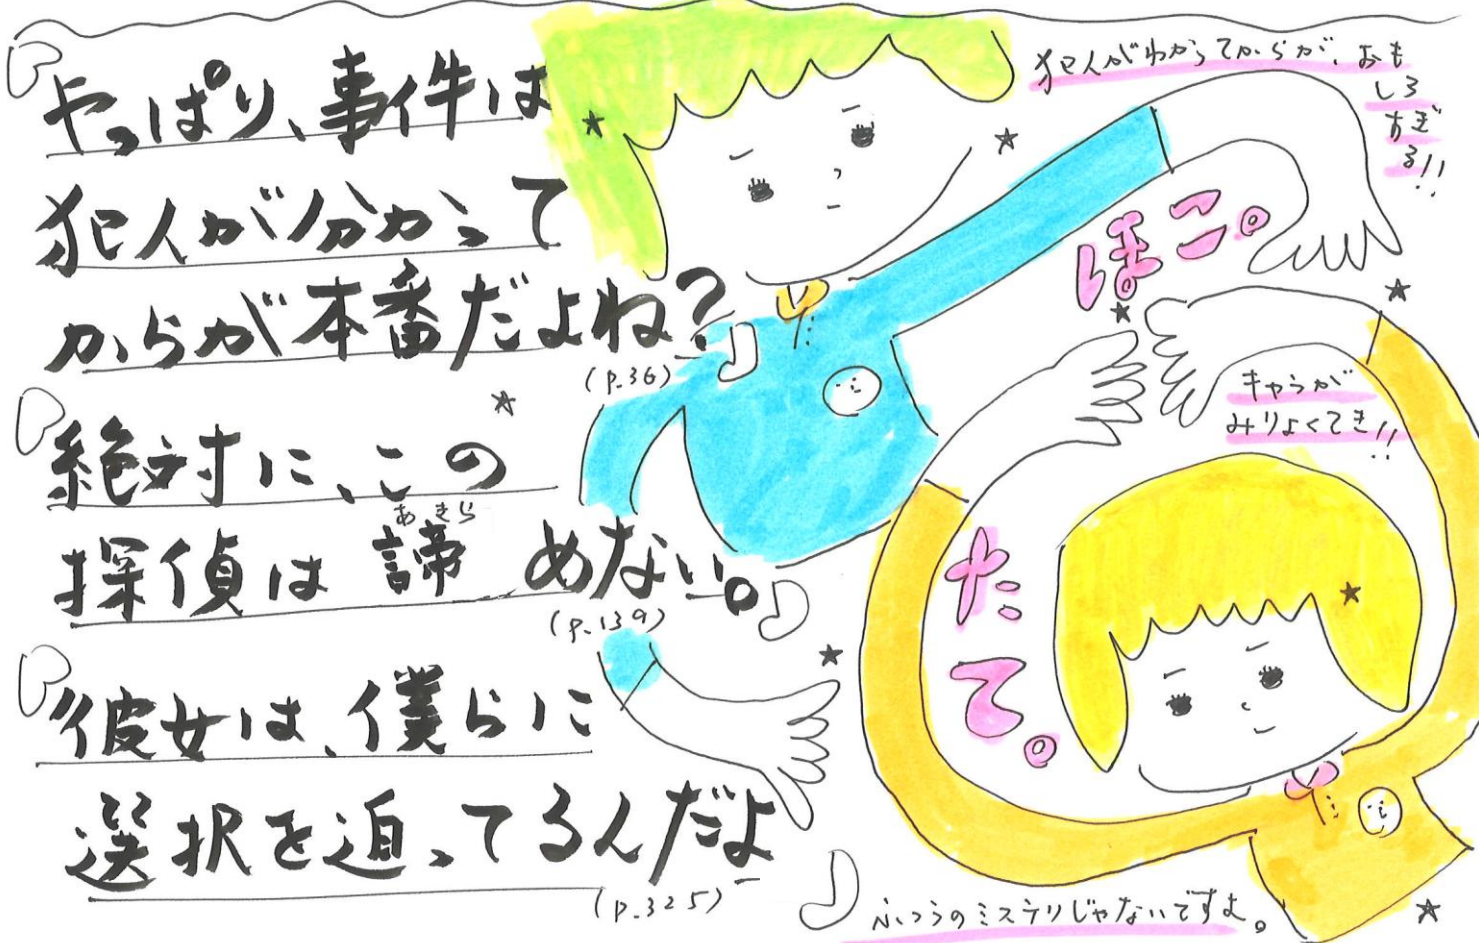 「やっぱり、事件は
犯人が分かって
からが本番だよね?」
(P.36)
「絶対に、この
探偵は諦めない。」
あきら
(P.139)
「彼女は、僕らに
選択を迫ってるんだよ」
(P.325)
犯人がわかってからが、おも
しろ
すぎ
る!!
ほこ。
キャラが
みりょくてき!!
たて。
ふつうのミステリじゃないですよ。